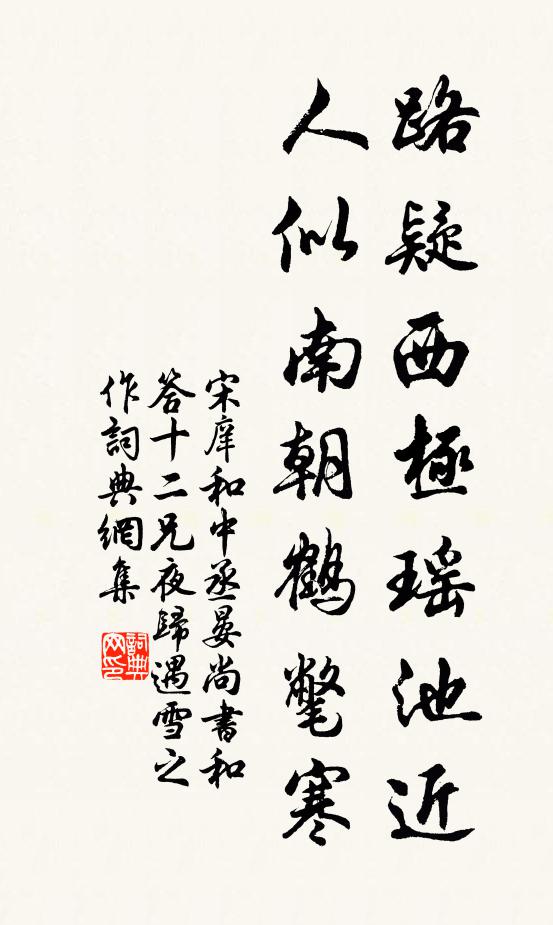 路疑西極瑶池近
人似南朝鶴氅寒
宋庠和中丞晏尚書和
答十二兄夜歸遇雪之
作詞典網集
詞典网印